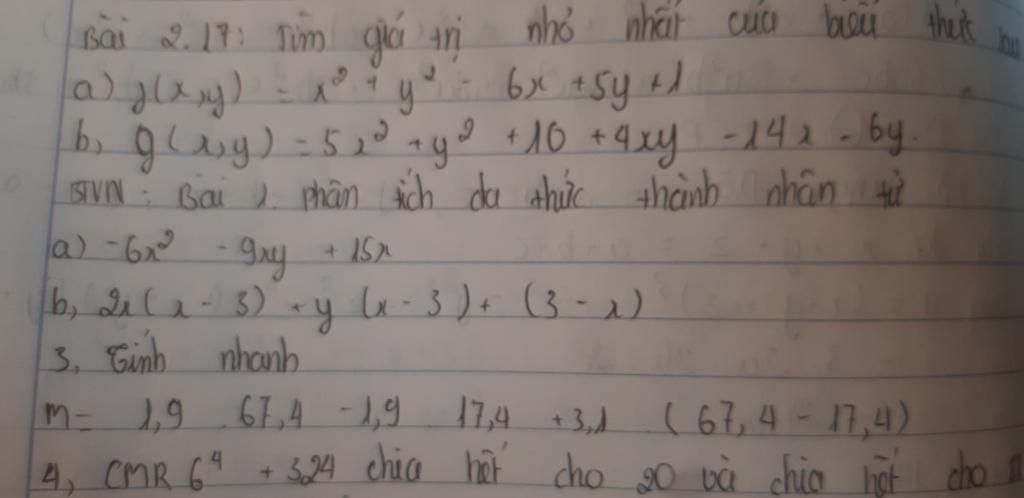 Bài 2.17: Tìm giá trị nhỏ nhất của biểu thức
a) g(x,y) = x² + y² - 6x + 5y + 1
b, g(x,y) = 5x² + y² + 10 + 4xy - 14x - 6y.
BTVN: Bài 1. phân tích đa thức thành nhân tử
a) -6x² - 9xy + 15x
b, 2x(x - 3) + y (x - 3) + (3 - x)
3, Tính nhanh
m = 1,9 . 67,4 - 1,9 17,4 + 3,1 (67,4 - 17,4)
4, CMR 6⁴ + 324 chia hết cho 20 và chia hết cho